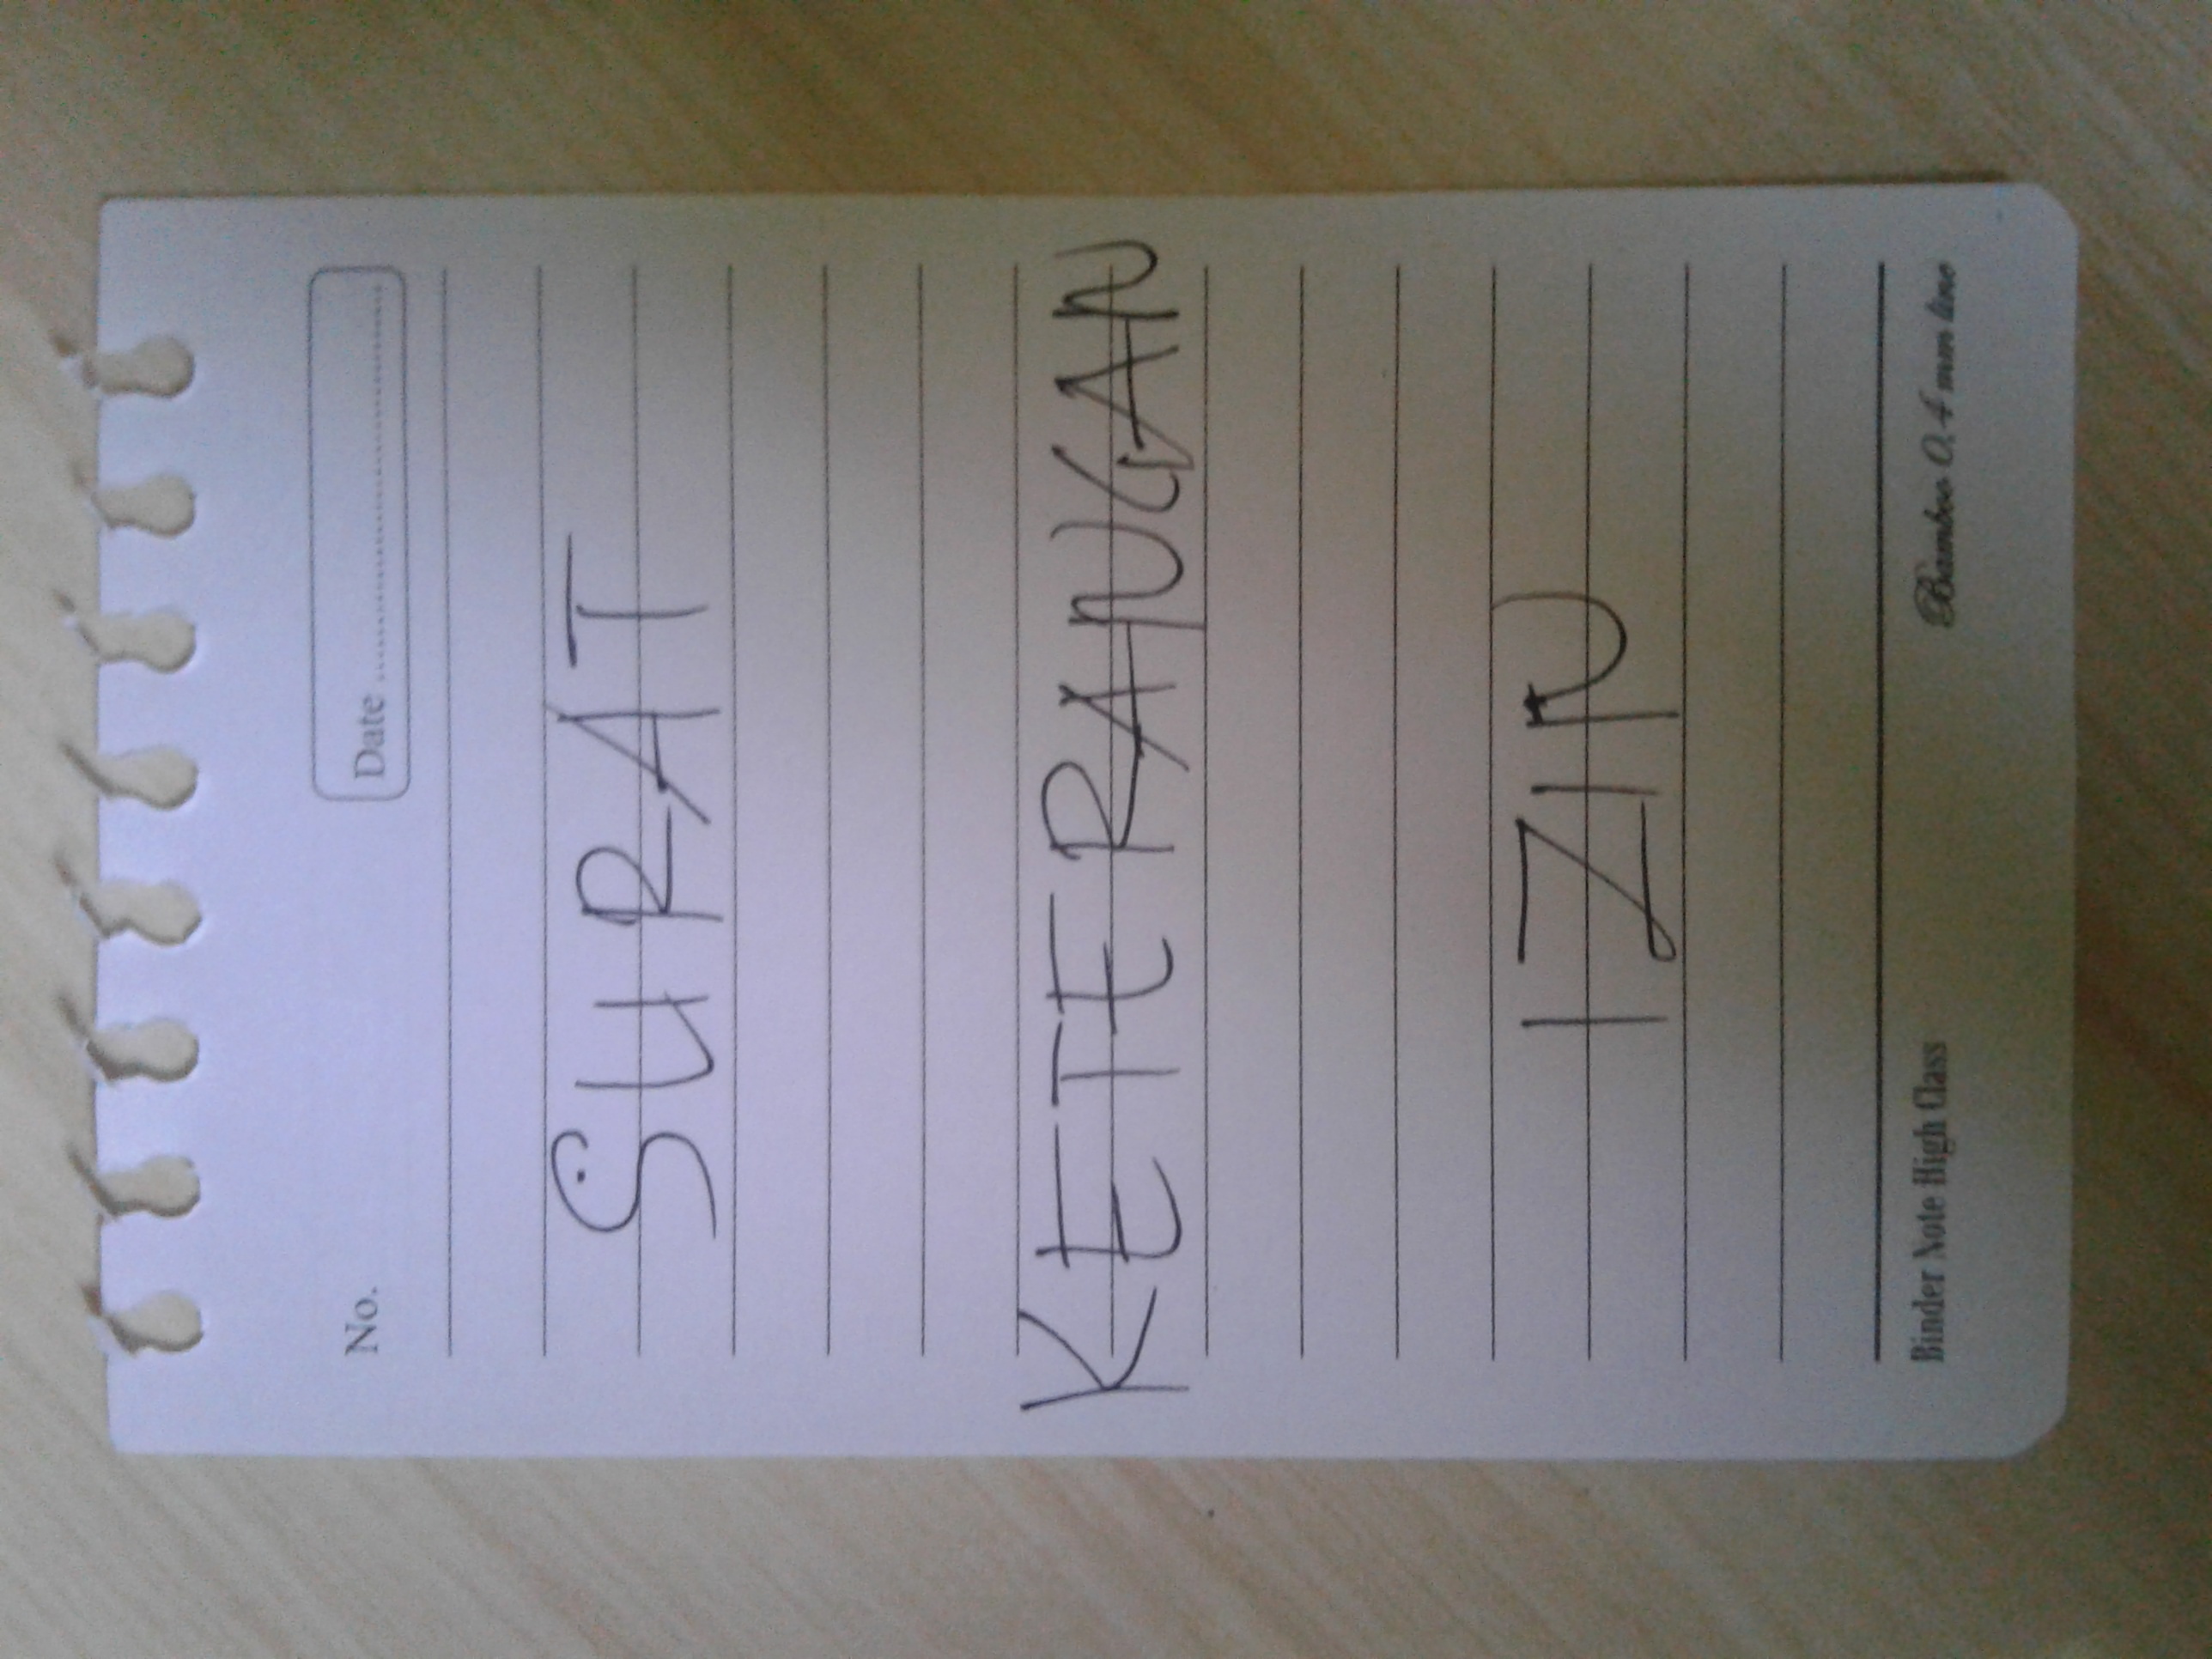 No.
Date ........................................
SURAT
KETERANGAN
IZIN
Binder Note High Class
Bamboo 0.4 mm line